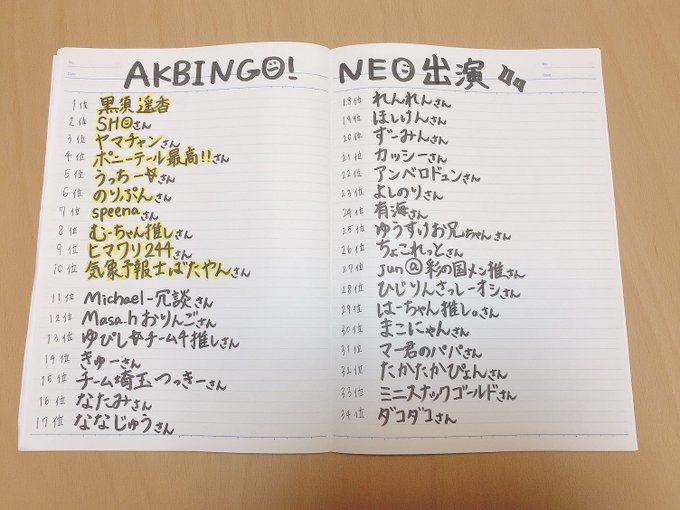 AKBINGO! NEO出演
1位 黒須遥香
2位 SHOさん
3位 ヤマチャンさん
4位 ポニーテール最高!!さん
5位 うっちー☆さん
6位 のりぷんさん
7位 speenaさん
8位 むーちゃん推しさん
9位 ヒマワリ244さん
10位 気象予報士ばたやんさん
11位 Michael-冗談さん
12位 Masa.hおりんごさん
13位 ゆぴし☆チーム4推しさん
14位 きゅーさん
15位 チーム埼玉つっきーさん
16位 なたみさん
17位 ななじゅうさん
18位 れんれんさん
19位 ほしけんさん
20位 ずーみんさん
21位 カッシーさん
22位 アンベロドュンさん
23位 よしのりさん
24位 有海さん
25位 ゆうすけお兄ちゃんさん
26位 ちょこれっとさん
27位 jun@彩の国メン推さん
28位 ひじりんさっしーオシさん
29位 はーちゃん推し。さん
30位 まこにゃんさん
31位 マー君のパパさん
32位 たかたかぴょんさん
33位 ミニスナックゴールドさん
34位 ダコダコさん